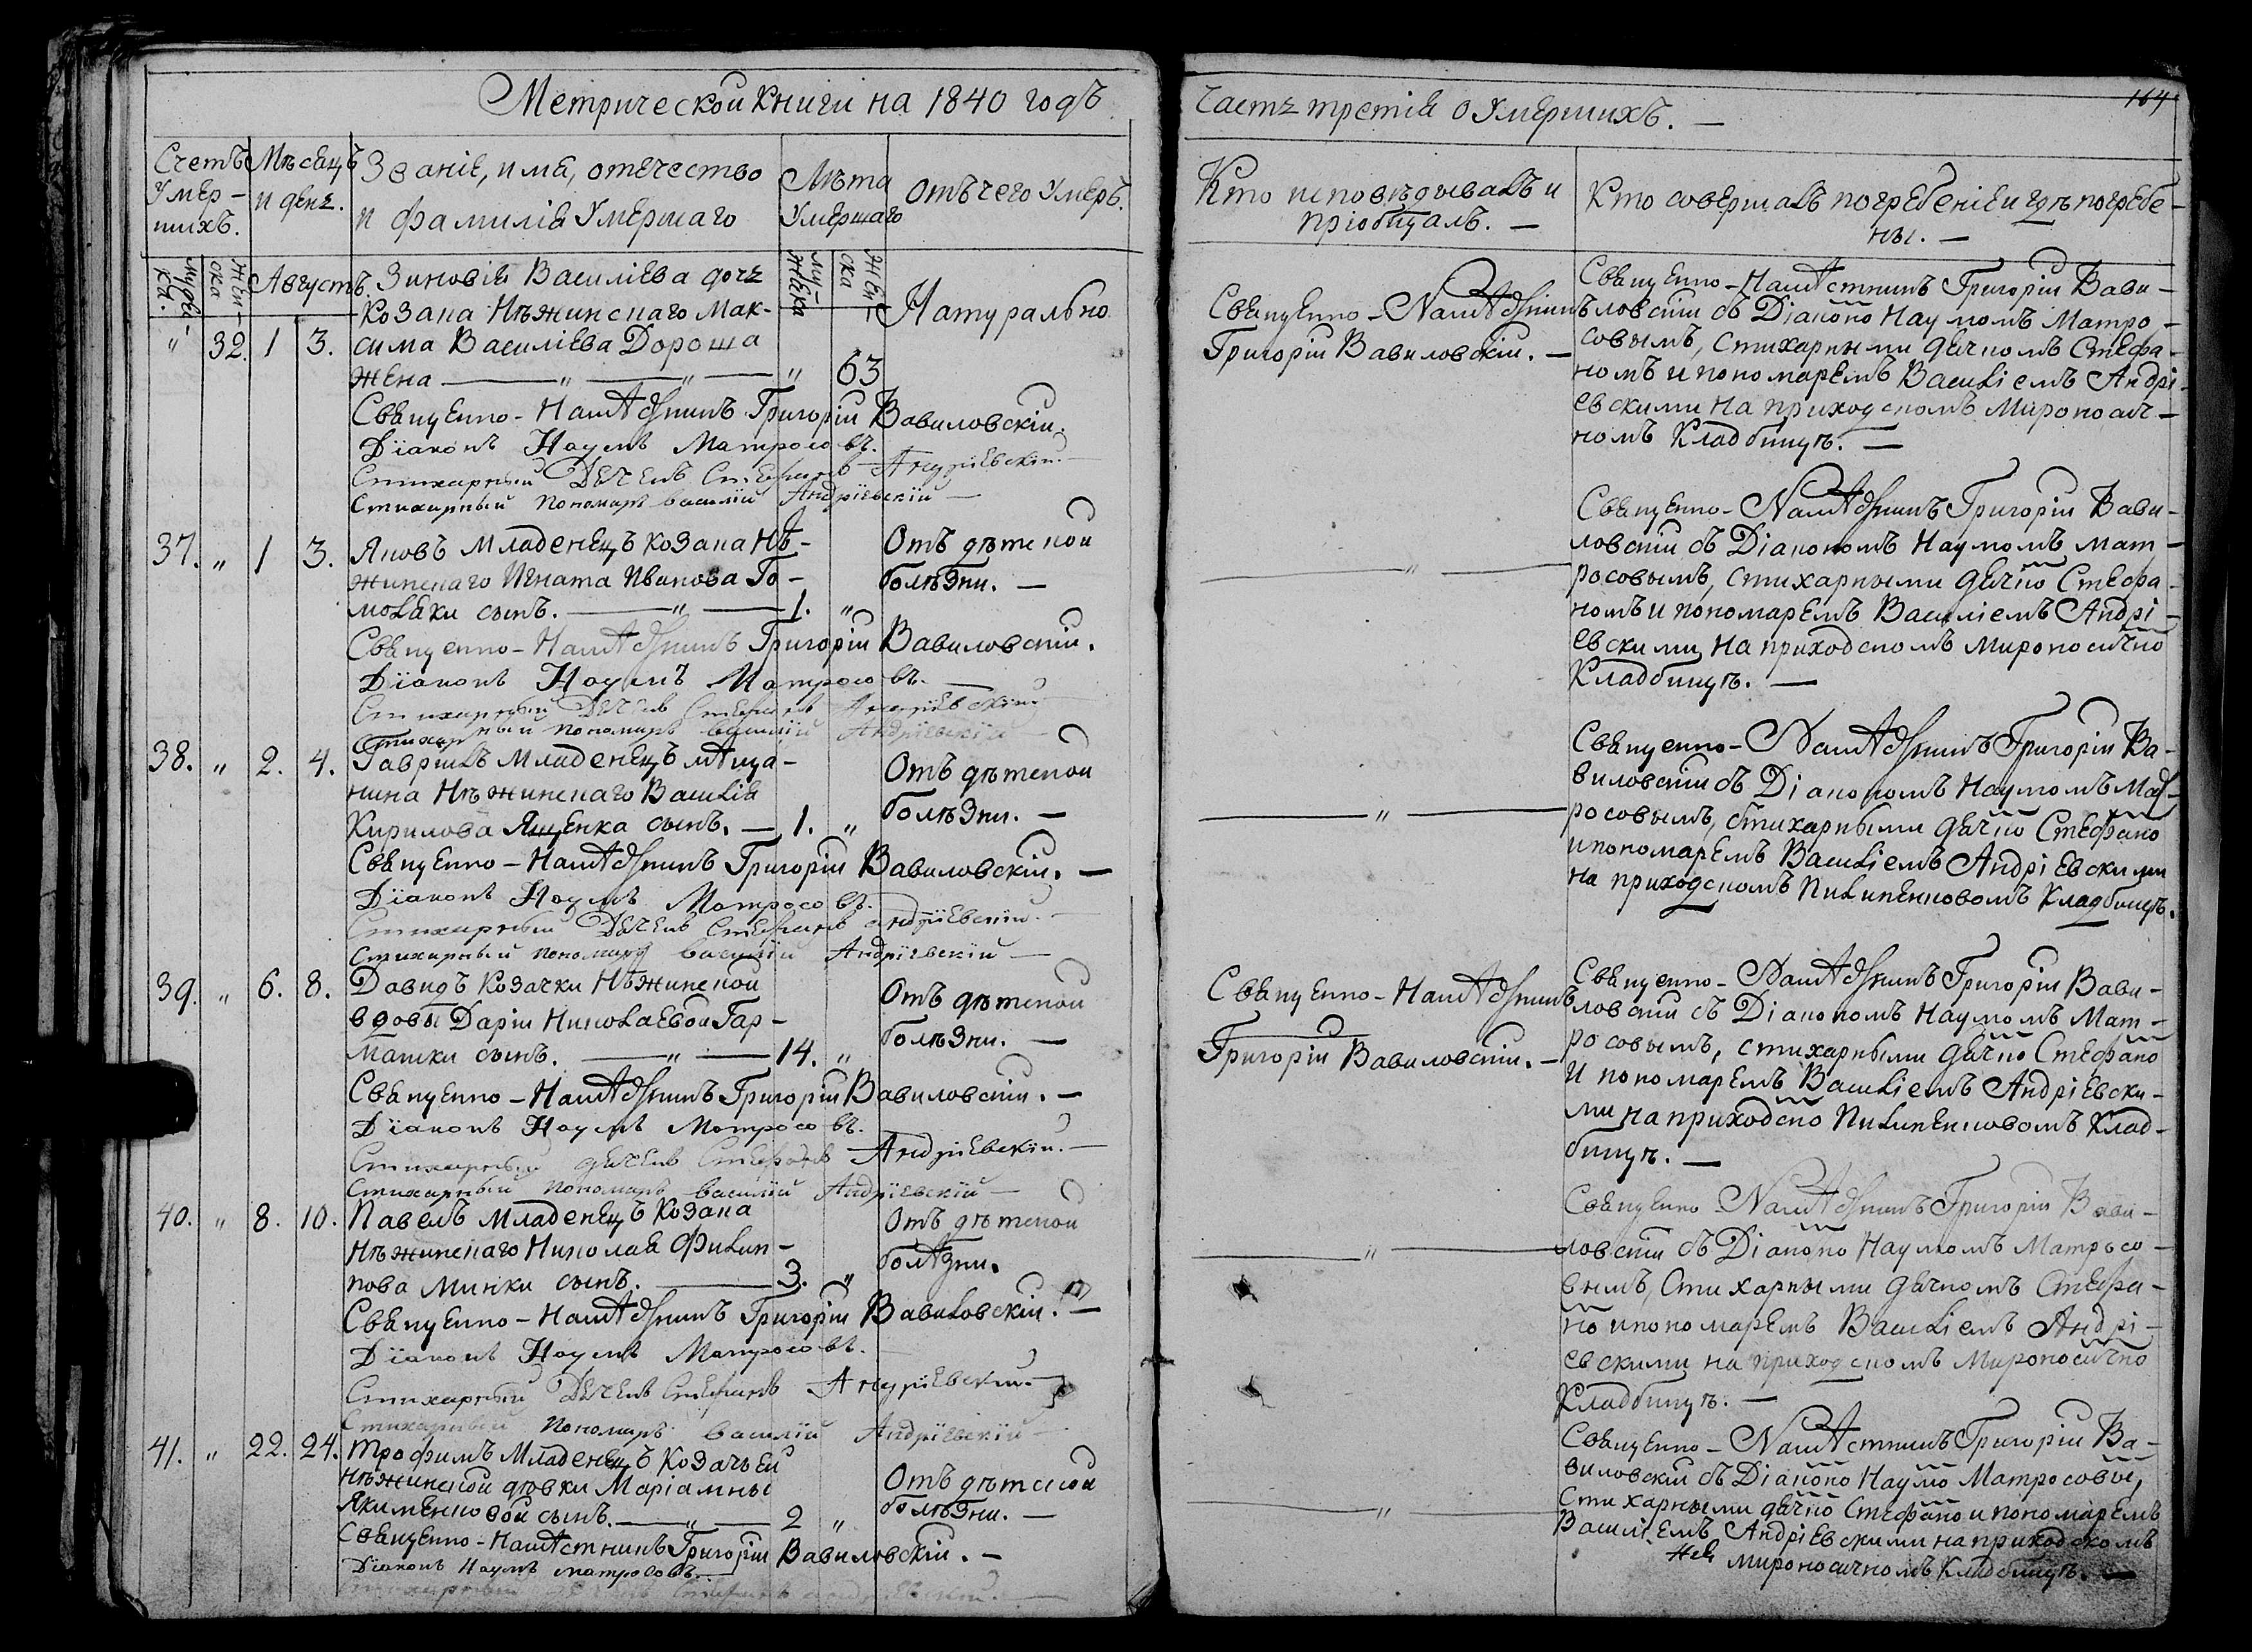 Метрической книги на 1840 годъ
Счетъ умер-шихъ.
Мѣсяцъ и день.
Званіе, имя, отечество
и фамилія умершаго
Лѣта
умершаго
отъ чего умеръ.
мужеска.
женска
Августъ.
мужеска
женска
" 32. 1 3. Зиновія Василіева дочь
козака Нѣжинскаго Мак-
сима Василіева Дороша
жена — " — " — " 63
Натурально
Священно-Намѣстникъ Григорій Вавиловскій.
Діаконъ Наумъ Матросовъ.
Стихарный Дячекъ Стефанъ Андріевскій.
Стихарный пономарь Василій Андріевскій
37. " 1 3. Яковъ младенецъ козака Нѣ-
жинскаго Игната Иванова Го-
моляки сынъ. — " — 1. "
Отъ дѣтской
болѣзни.
Священно-Намѣстникъ Григорій Вавиловскій.
Діаконъ Наумъ Матросовъ.
Стихарный Дячекъ Стефанъ Андріевскій
Стихарный пономарь Василій Андріевскій
38. " 2. 4. Гавріилъ младенецъ мѣща-
нина Нѣжинскаго Василія
Кирилова Ященка сынъ. — 1. "
Отъ дѣтской
болѣзни.
Священно-Намѣстникъ Григорій Вавиловскій.
Діаконъ Наумъ Матросовъ.
Стихарный Дячекъ Стефанъ Андріевскій.
Стихарный пономарь Василій Андріевскій
39. " 6. 8. Давидъ козачки Нѣжинской
вдовы Даріи Николаевой Гар-
машки сынъ. — " — 14. "
Отъ дѣтской
болѣзни.
Священно-Намѣстникъ Григорій Вавиловскій.
Діаконъ Наумъ Матросовъ.
Стихарный дячекъ Стефанъ Андріевскій.
Стихарный пономарь Василій Андріевскій
40. " 8. 10. Павелъ младенецъ козака
Нѣжинскаго Николая Филип-
пова Минки сынъ. — 3. "
Отъ дѣтской
болѣзни.
Священно-Намѣстникъ Григорій Вавиловскій.
Діаконъ Наумъ Матросовъ.
Стихарный Дячекъ Стефанъ Андріевскій.
Стихарный пономарь Василій Андріевскій
41. " 22. 24. Трофимъ младенецъ козачьей
Нѣжинской дѣвки Маріамны
Якименковой сынъ. — " — 2 "
Отъ дѣтской
болѣзни.
Священно-Намѣстникъ Григорій Вавиловскій.
Діаконъ Наумъ Матросовъ.
Стихарный Дячекъ Стефанъ Андріевскій.
Часть третія о умершихъ.
164
Кто исповѣдывалъ и
пріобщалъ.
Кто совершалъ погребеніе и гдѣ погребе-
ны.
Священно-Намѣстникъ
Григорій Вавиловскій.
Священно-Намѣстникъ Григорій Вави-
ловскій съ Діакono Наумомъ Матро-
совымъ, стихарными дячкомъ Стефа-
номъ и пономаремъ Василіемъ Андрі-
евскими на приходскомъ Мироносич-
номъ Кладбищѣ.
— " —
Священно-Намѣстникъ Григорій Вави-
ловскій съ Діакономъ Наумомъ Мат-
росовымъ, стихарными дячко Стефа-
номъ и пономаремъ Василіемъ Андрі-
евскими на приходскомъ Мироносично
Кладбищѣ.
— " —
Священно-Намѣстникъ Григорій Ва-
виловскій съ Діакономъ Наумомъ Мат-
росовымъ, стихарными дячко Стефано
и пономаремъ Василіемъ Андріевскими
на приходскомъ Пилипенковомъ Кладбищѣ.
Священно-Намѣстникъ
Григорій Вавиловскій.
Священно-Намѣстникъ Григорій Вави-
ловскій съ Діакономъ Наумомъ Мат-
росовымъ, стихарными дячко Стефано
и пономаремъ Василіемъ Андріевски-
ми на приходско Пилипенковомъ Клад-
бищѣ.
— " —
Священно-Намѣстникъ Григорій Вави-
ловскій съ Діаконо Наумомъ Матросо-
вымъ, Стихарными дячкомъ Стефа-
но и пономаремъ Василіемъ Андрі-
евскими на приходскомъ Мироносично
Кладбищѣ.
— " —
Священно-Намѣстникъ Григорій Ва-
виловскій съ Діаконо Наумо Матросовы,
Стихарными дячко Стефано и пономаремъ
Василіемъ Андріевскими на приходскомъ
Мироносичномъ Кладбищѣ.